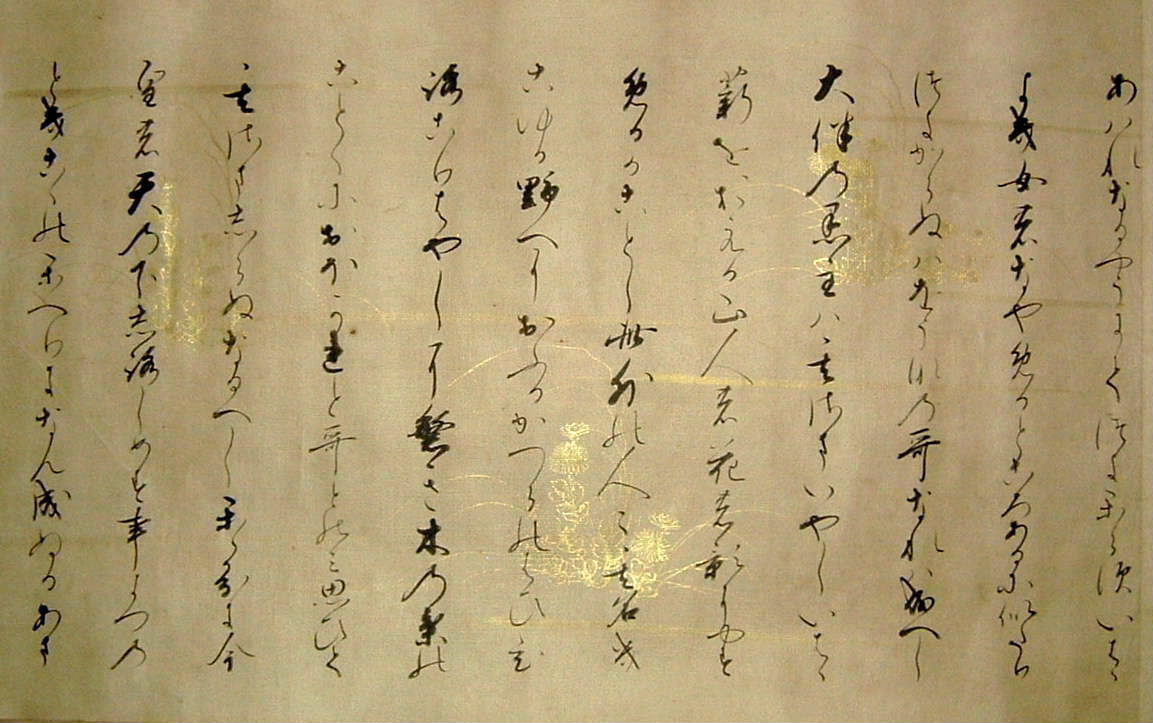 あはれなるやうにてつよからすいはゝ
よき女のなやめるところあるに似たり
つよからぬはをうなの哥なれはなるへし
大伴の黒主はそのさまいやしいはゝ
薪をおへる山人の花の影にやす
めるかことし此外の人々其名き
こゆる野へにおふるかつらのはひひ
ろこりはやしに繁き木の葉の
ことくにおほかれと哥とのみ思ひて
其さましらぬなるへしかゝるに今
皇の天の下しろしめす事よつの
ときこゝのかへりになん成ぬるあま